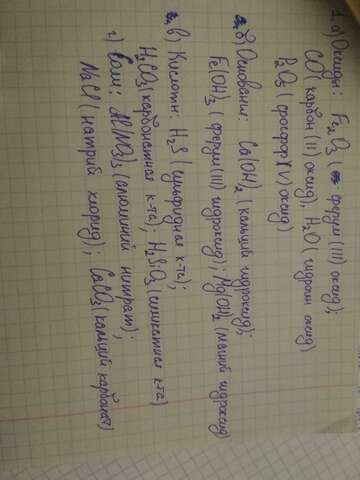 1. а) Оксиды: Fe₂O₃ (ферум (III) оксид);
CO (карбон (II) оксид), H₂O (гидроген оксид)
P₂O₅ (фосфор (V) оксид)
б) Основания: Ca(OH)₂ (кальций гидроксид);
Fe(OH)₃ (ферум (III) гидроксид); Mg(OH)₂ (магний гидроксид)
в) Кислоты: H₂S (сульфидная к-та);
H₂CO₃ (карбонатная к-та); H₂SiO₃ (силикатная к-та)
г) Соли: Al(NO₃)₃ (алюминий нитрат);
NaCl (натрий хлорид); CaCO₃ (кальций карбонат)